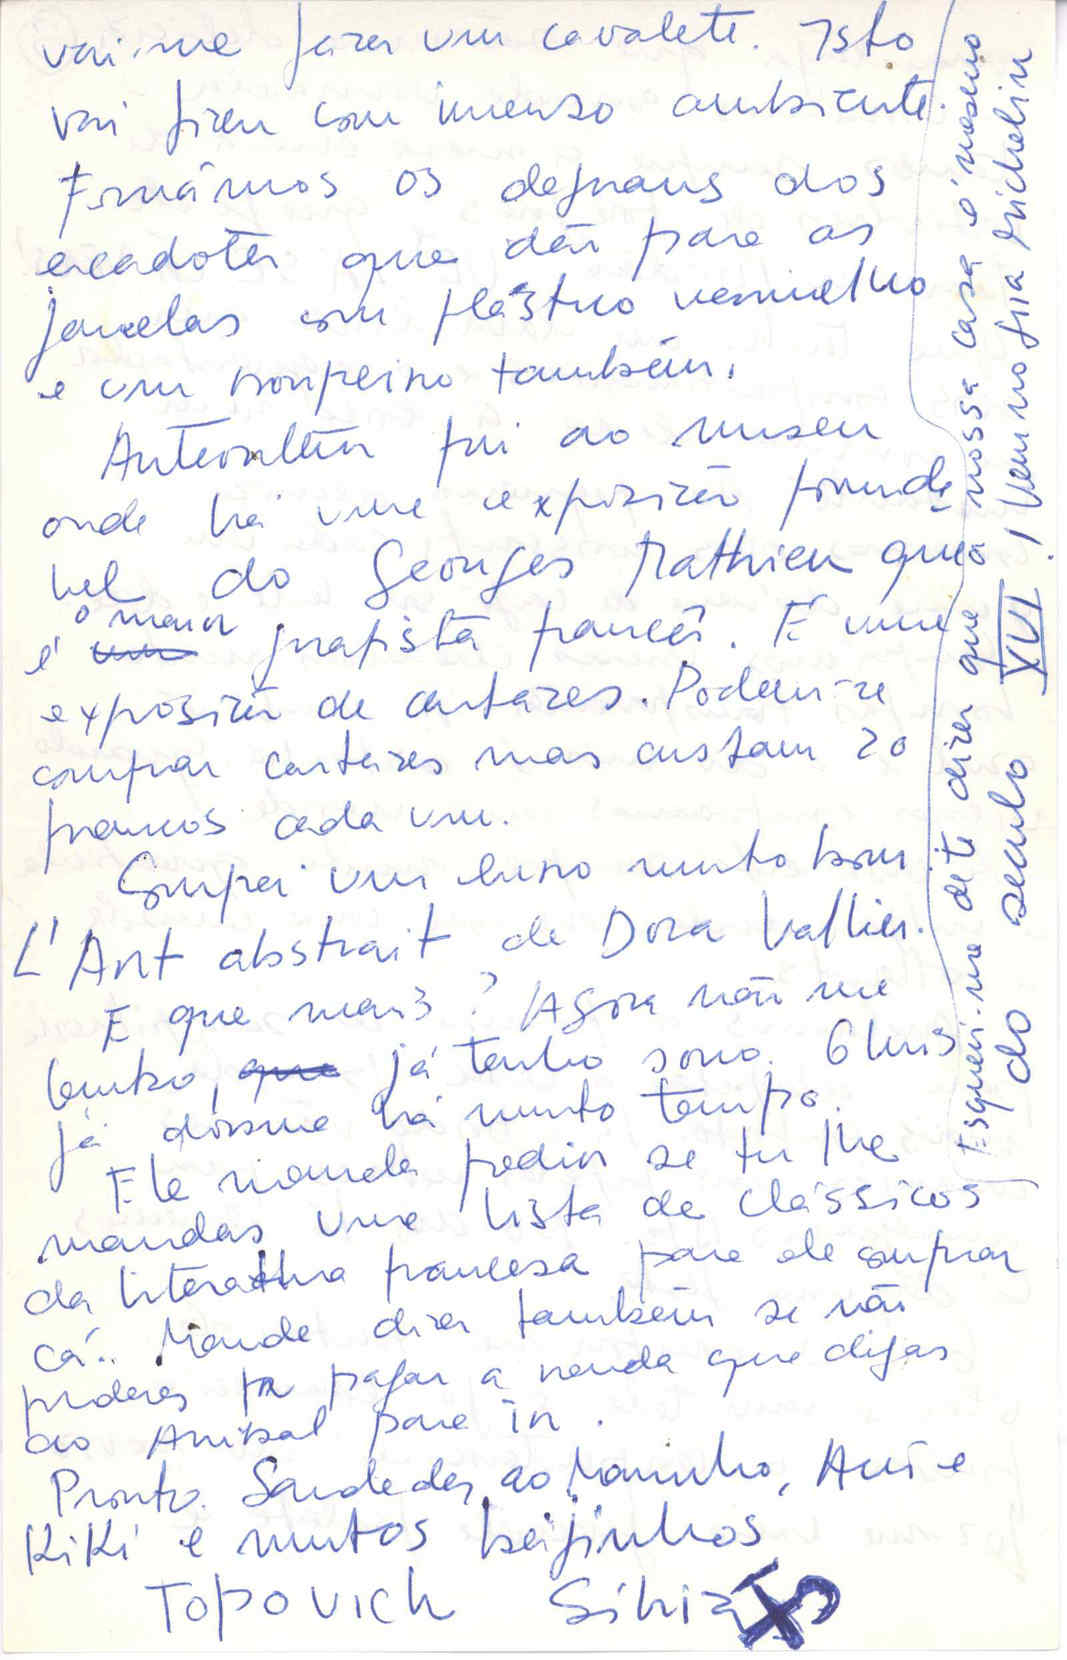 vai-me fazer um cavalete. Isto
vai ficar com imenso ambiente.
Forrámos os degraus dos
escadotes que dão para as
janelas com plástico vermelho
e um roupeiro também.
Anteontem fui ao museu
onde há uma exposição formidá
vel do Georges Mathieu que
é o maior grafista francês. É uma
exposição de cartazes. Podem-se
comprar cartazes mas custam 20
francos cada um.
Comprei um livro muito bom
L'Art abstrait de Dora Vallier.
E que mais? Agora não me
lembro, que já tenho sono. O Luis
já dorme há muito tempo.
Ele manda pedir se tu lhe
mandas uma lista de clássicos
da literatura francesa para ele comprar
cá. Manda dizer também se não
puderes pagar a renda que digas
ao Anibal para ir.
Pronto. Saudades ao Maninho, Ani e
Kiki e muitos beijinhos
TOPOVICH Silvia
Esqueci-me de te dizer que a nossa casa é mesmo
do seculo XVI! Vem no guia Michelin